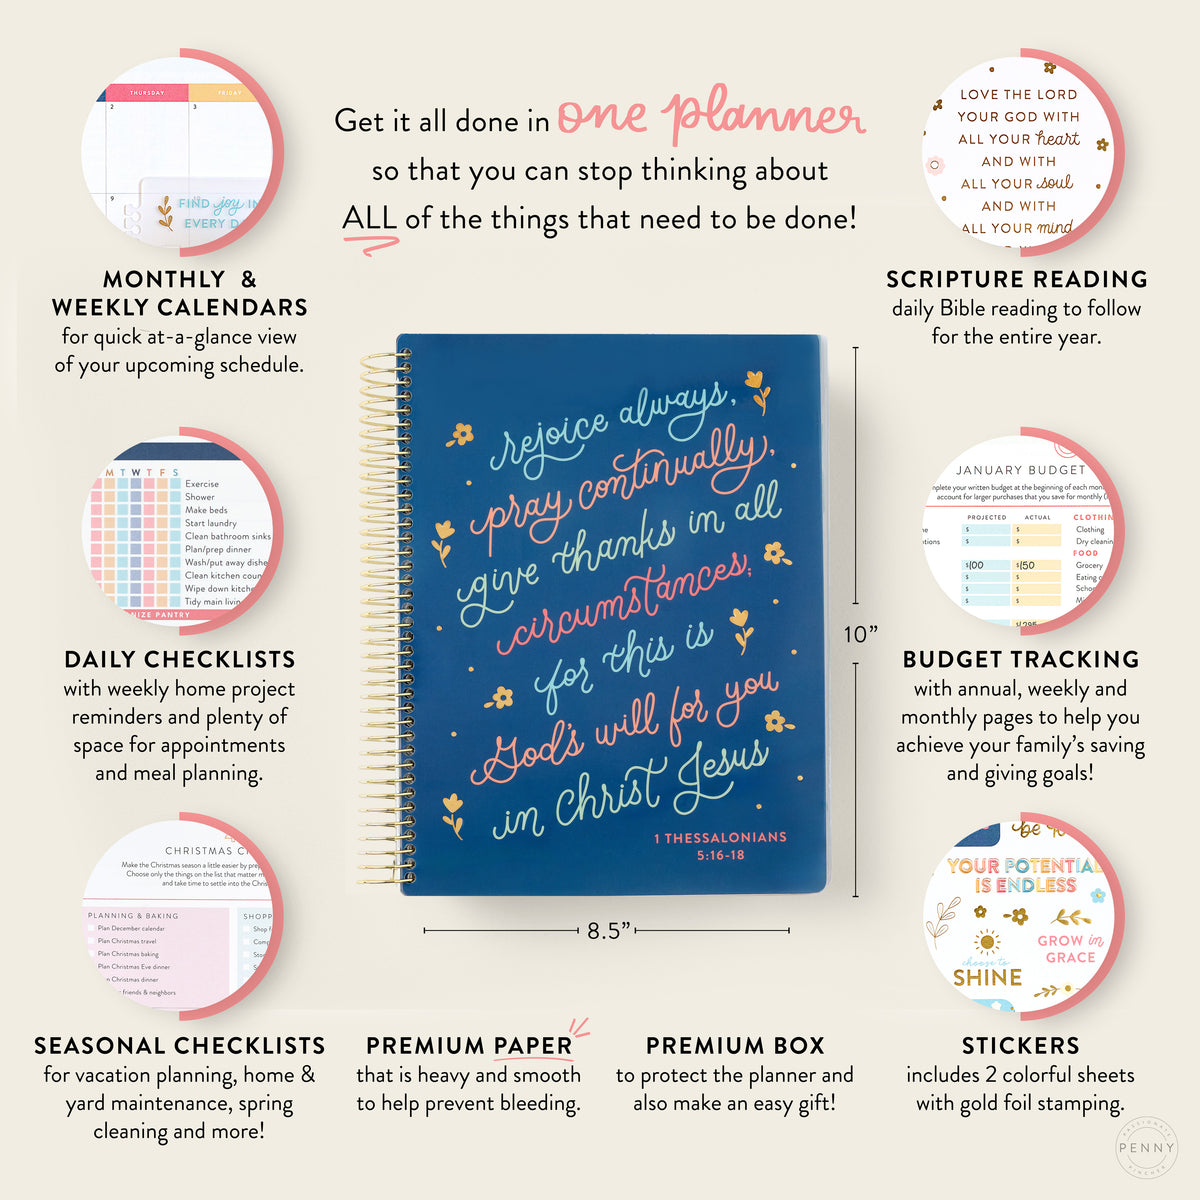 Get it all done in one planner
so that you can stop thinking about
ALL of the things that need to be done!
THURSDAY FRIDAY
2 3
9
FIND joy IN
EVERY
MONTHLY &
WEEKLY CALENDARS
for quick at-a-glance view
of your upcoming schedule.
LOVE THE LORD
YOUR GOD WITH
ALL YOUR heart
AND WITH
ALL YOUR soul
AND WITH
ALL YOUR mind
SCRIPTURE READING
daily Bible reading to follow
for the entire year.
M T W T F S
Exercise
Shower
Make beds
Start laundry
Clean bathroom sinks
Plan/prep dinner
Wash/put away
Clean kitchen
Wipe down
Tidy main
PANTRY
DAILY CHECKLISTS
with weekly home project
reminders and plenty of
space for appointments
and meal planning.
rejoice always,
pray continually,
give thanks in all
circumstances;
for this is
God's will for you
in Christ Jesus
1 THESSALONIANS
5:16-18
10”
8.5”
JANUARY BUDGET
your written budget at the beginning of each
account for larger purchases that you save for monthly
PROJECTED ACTUAL
$ $ Clothing
$ $ Dry
FOOD
$100 $150 Grocery
$ $ Eating
$ $
$ $
BUDGET TRACKING
with annual, weekly and
monthly pages to help you
achieve your family’s saving
and giving goals!
CHRISTMAS
Make the Christmas season a little easier by
Choose only the things on the list that matter
and take time to settle into the
PLANNING & BAKING
Plan December calendar
Plan Christmas travel
Plan Christmas baking
Plan Christmas Eve dinner
Christmas dinner
friends & neighbors
SEASONAL CHECKLISTS
for vacation planning, home &
yard maintenance, spring
cleaning and more!
PREMIUM PAPER
that is heavy and smooth
to help prevent bleeding.
PREMIUM BOX
to protect the planner and
also make an easy gift!
be
YOUR POTENTIAL
IS ENDLESS
GROW in
GRACE
choose to
SHINE
STICKERS
includes 2 colorful sheets
with gold foil stamping.
PASSIONATE
PENNY
PINCHER